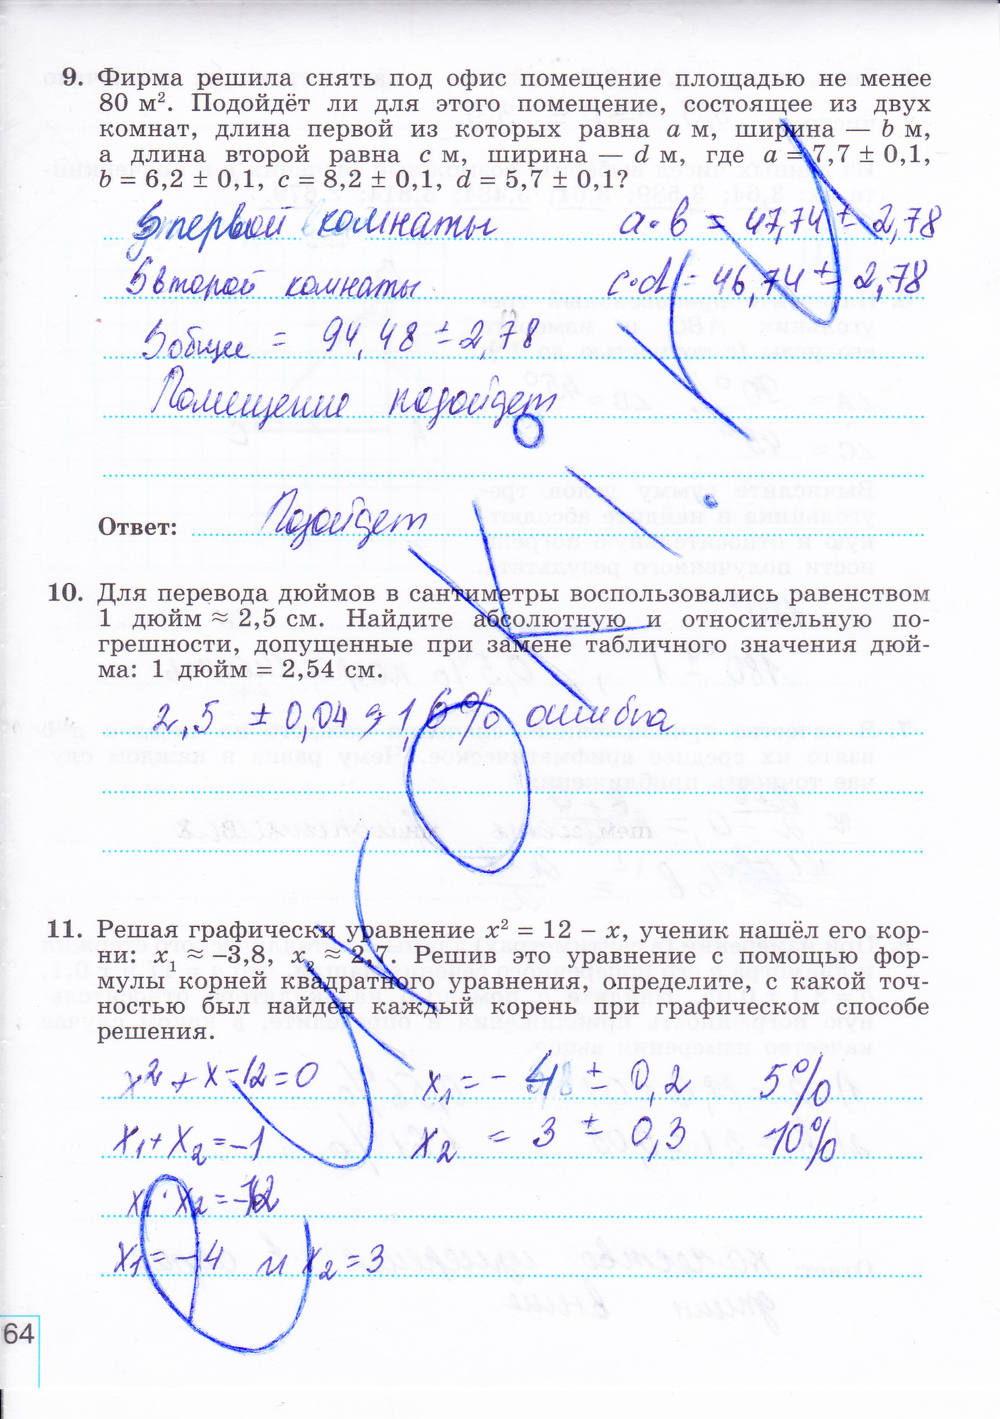 9. Фирма решила снять под офис помещение площадью не менее
80 м². Подойдёт ли для этого помещение, состоящее из двух
комнат, длина первой из которых равна a м, ширина — b м,
а длина второй равна c м, ширина — d м, где a = 7,7 ± 0,1,
b = 6,2 ± 0,1, c = 8,2 ± 0,1, d = 5,7 ± 0,1?
S первой комнаты a·b = 47,74 ± 2,78
S второй комнаты c·d = 46,74 ± 2,78
S общее = 94,48 ± 2,78
Помещение подойдет
Ответ: Подойдет
10. Для перевода дюймов в сантиметры воспользовались равенством
1 дюйм ≈ 2,5 см. Найдите абсолютную и относительную по-
грешности, допущенные при замене табличного значения дюй-
ма: 1 дюйм = 2,54 см.
2,5 ± 0,04 1,6% ошибка
11. Решая графически уравнение x² = 12 – x, ученик нашёл его кор-
ни: x₁ ≈ –3,8, x₂ ≈ 2,7. Решив это уравнение с помощью фор-
мулы корней квадратного уравнения, определите, с какой точ-
ностью был найден каждый корень при графическом способе
решения.
x² + x - 12 = 0 x₁ = - 4 ± 0,2 5%
x₁ + x₂ = -1 x₂ = 3 ± 0,3 10%
x₁ · x₂ = -12
x₁ = -4 и x₂ = 3
64